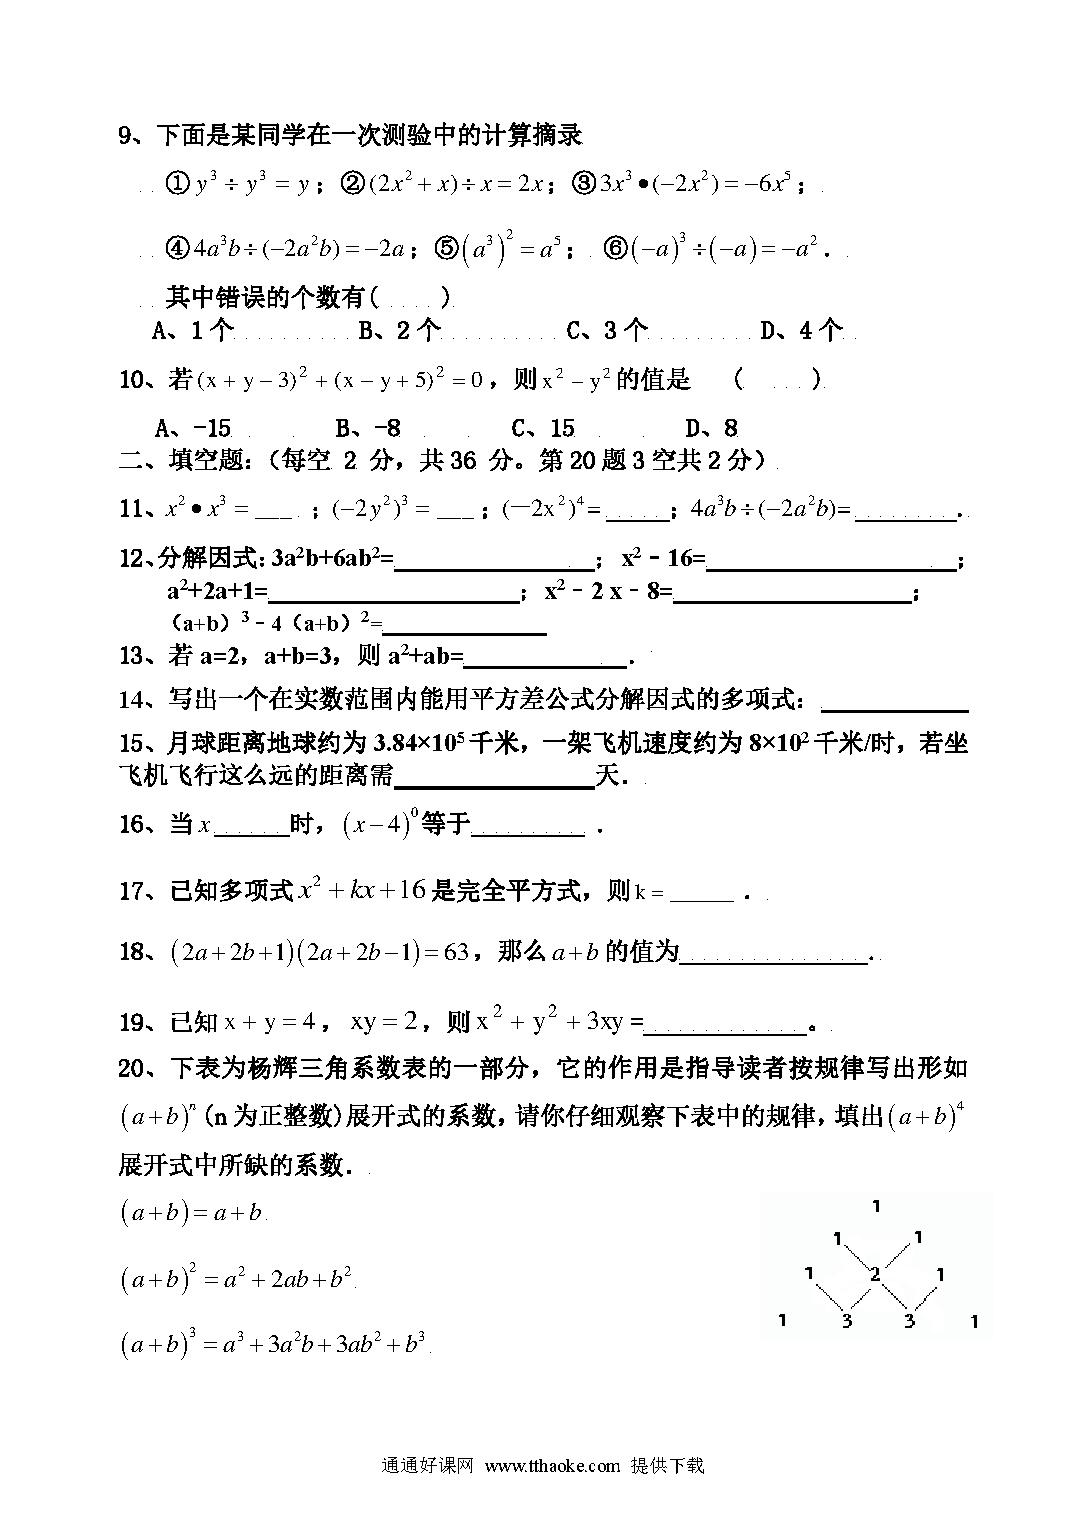 9、下面是某同学在一次测验中的计算摘录
①y³÷y³=y；②(2x²+x)÷x=2x；③3x³•(−2x²)=−6x⁵；
④4a³b÷(−2a²b)=−2a；⑤(a³)²=a⁵；⑥(−a)³÷(−a)=−a²．
其中错误的个数有( )
A、1个 B、2个 C、3个 D、4个
10、若(x+y−3)²+(x−y+5)²=0，则x²−y²的值是 ( )
A、-15 B、-8 C、15 D、8
二、填空题：（每空 2 分，共36 分。第20题3空共2分）
11、x²•x³=___；(−2y²)³=___；(一2x²)⁴=_____；4a³b÷(−2a²b)=________.
12、分解因式：3a²b+6ab²=________________； x²﹣16=____________________；
a²+2a+1=____________________；x²﹣2 x﹣8=___________________；
（a+b）³﹣4（a+b）²=_____________
13、若 a=2，a+b=3，则 a²+ab=_____________．
14、写出一个在实数范围内能用平方差公式分解因式的多项式：____________
15、月球距离地球约为 3.84×10⁵千米，一架飞机速度约为 8×10²千米/时，若坐
飞机飞行这么远的距离需________________天．
16、当x______时，(x−4)⁰等于_________．
17、已知多项式x²+kx+16是完全平方式，则k=_____．
18、(2a+2b+1)(2a+2b−1)=63，那么a+b的值为_______________.
19、已知x+y=4，xy=2，则x²+y²+3xy=_____________。
20、下表为杨辉三角系数表的一部分，它的作用是指导读者按规律写出形如
(a+b)ⁿ(n为正整数)展开式的系数，请你仔细观察下表中的规律，填出(a+b)⁴
展开式中所缺的系数．
(a+b)=a+b
(a+b)²=a²+2ab+b²
(a+b)³=a³+3a²b+3ab²+b³
1
1 1
1 2 1
1 3 3 1
通通好课网 www.tthaoke.com 提供下载